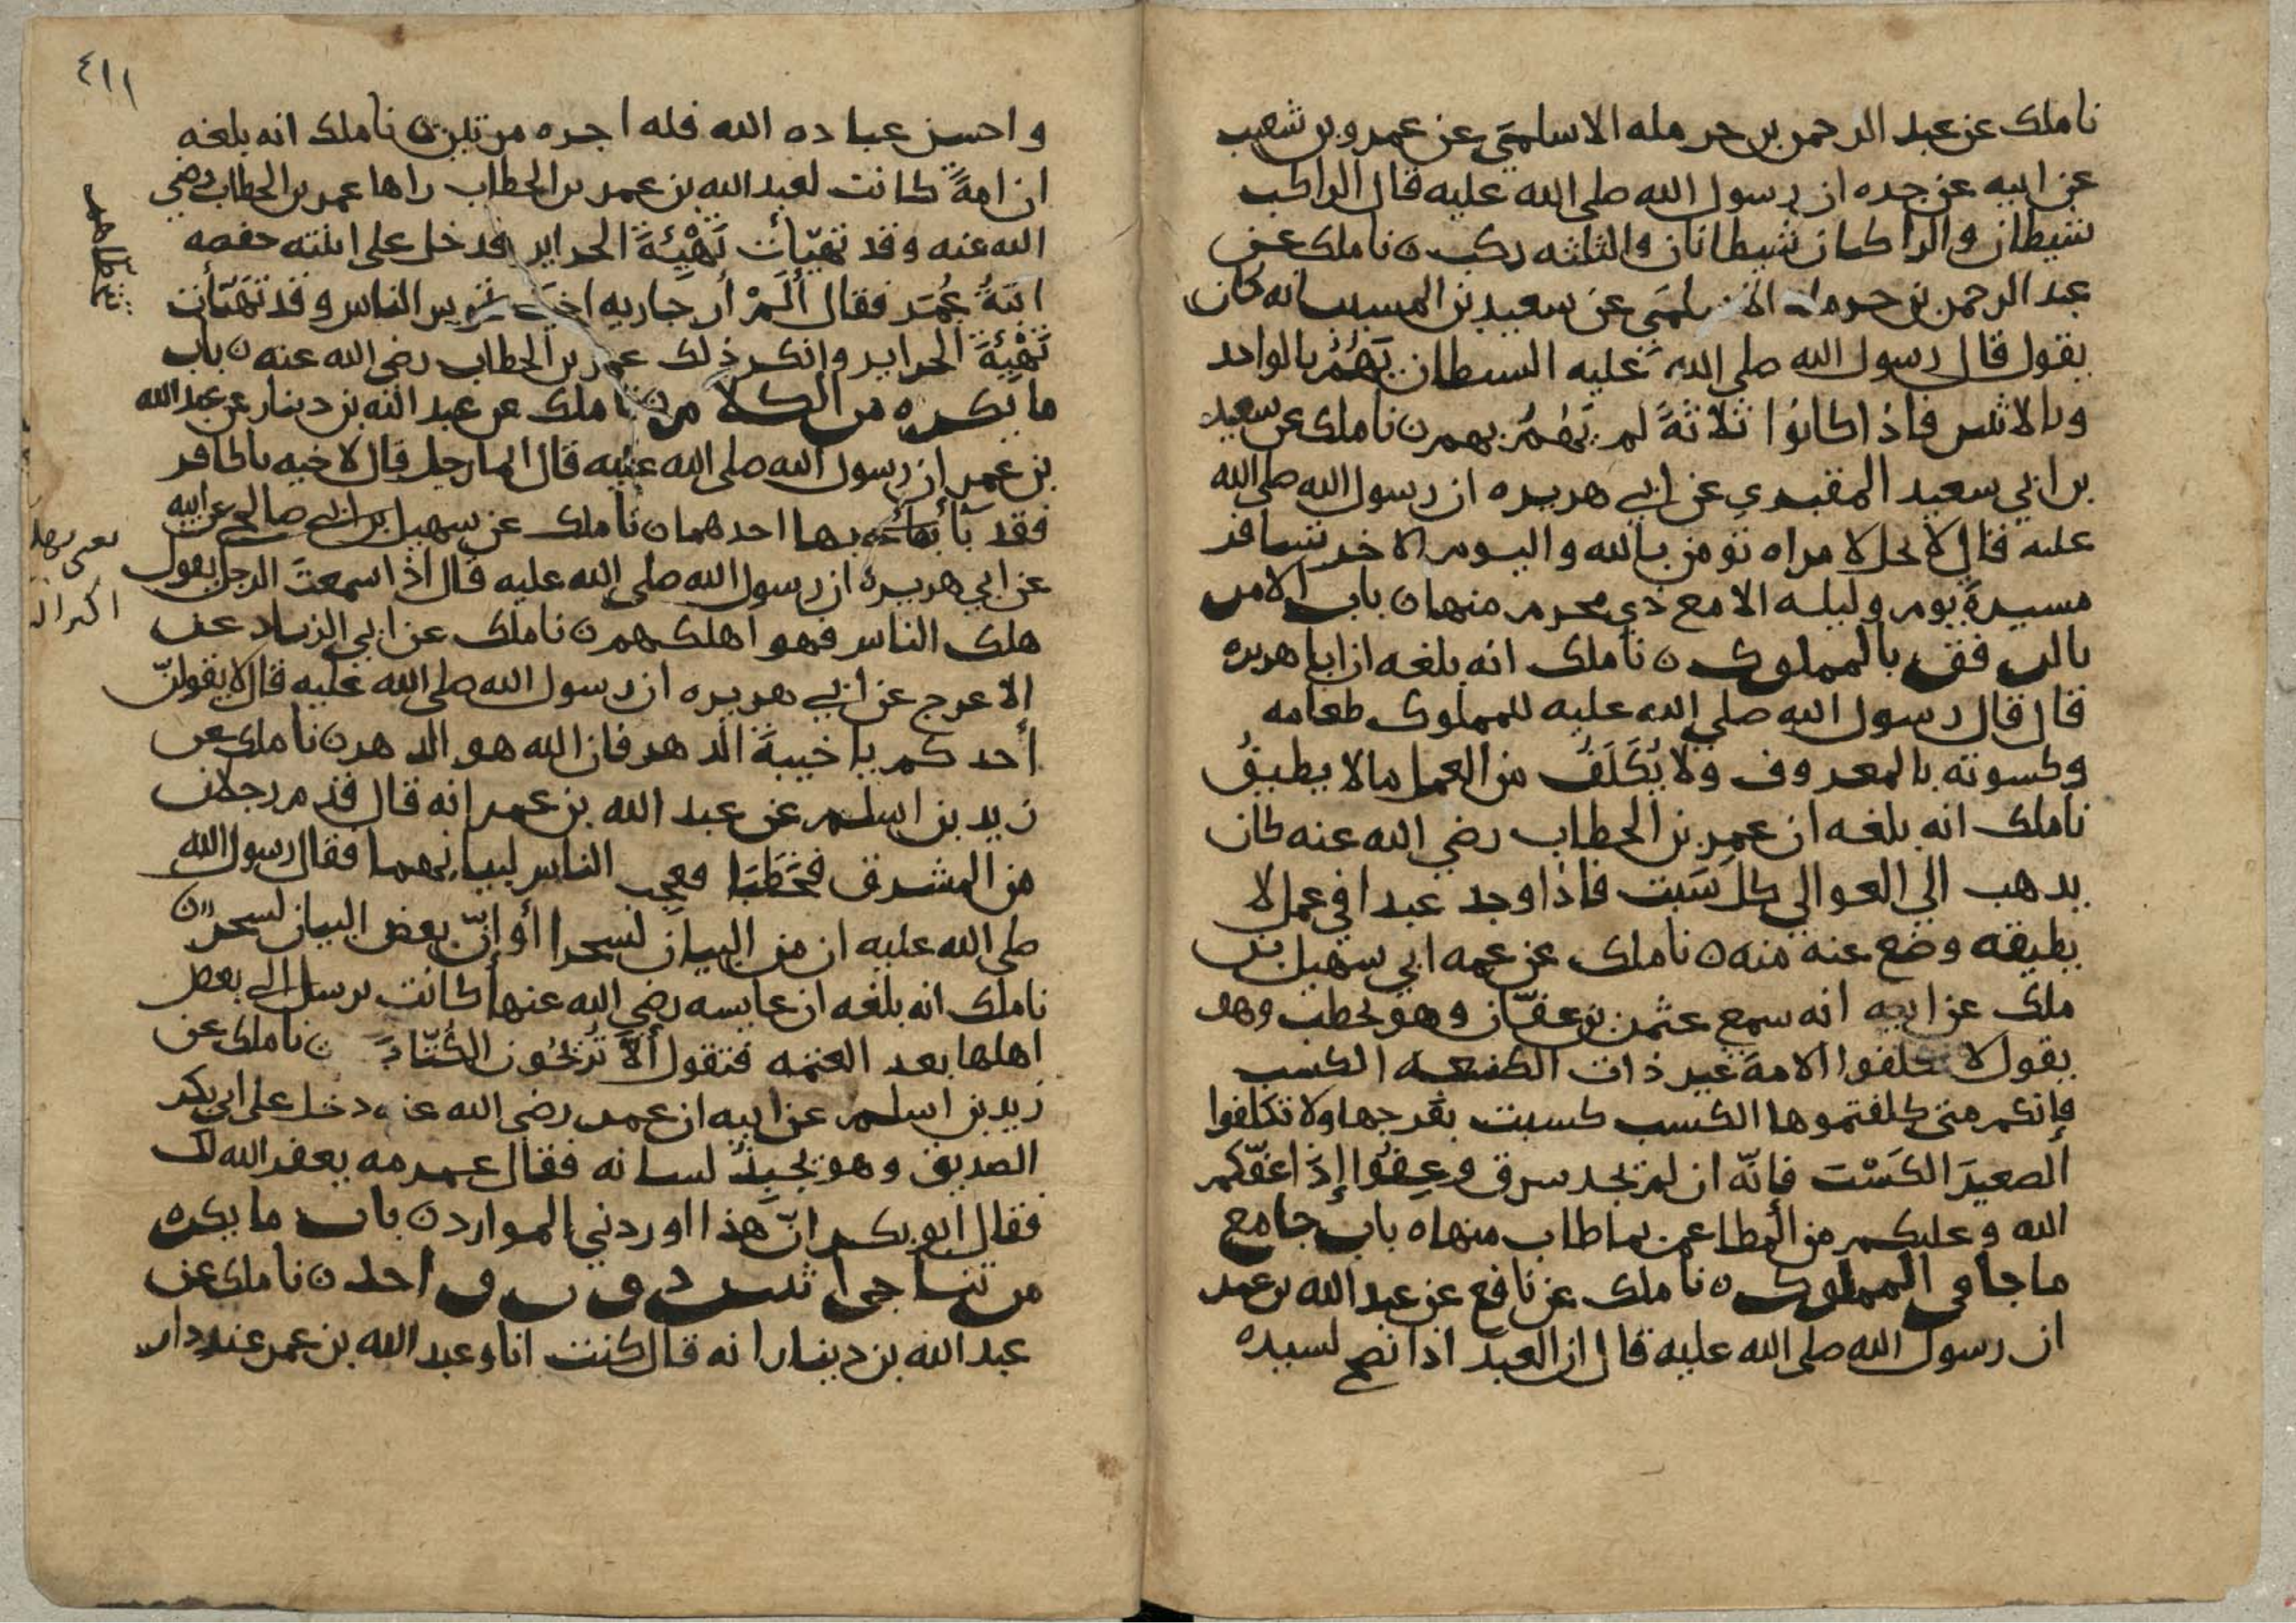 نا ملك عن عبد الرحمن بن حرمله الاسلمي عن عمرو بن شعيب
عن ابيه عن جده ان رسول الله صلى الله عليه قال الراكب
شيطان والراكبان شيطانان والثلثه ركب ن نا ملك عن
عبد الرحمن بن حرمله الاسلمي عن سعيد بن المسيب انه كان
يقول قال رسول الله صلى الله عليه الشيطان يَهُمُّ بالواحد
وبالاثنين فاذا كانوا ثلاثةً لم يَهُمُّ بهم ن نا ملك عن سعيد
بن ابي سعيد المقبري عن ابي هريره ان رسول الله صلى الله
عليه قال لا يحل لامراه تومن بالله واليوم الاخر تسافر
مسيرة يوم وليله الا مع ذي محرم منها ن باب الامر
بالرفق بالمملوك ن نا ملك انه بلغه ان ابا هريره
قال قال رسول الله صلى الله عليه للمملوك طعامه
وكسوته بالمعروف ولا يُكَلَّفُ من العمل ما لا يطيقُ
نا ملك انه بلغه ان عمر بن الخطاب رضي الله عنه كان
يذهب الى العوالي كل سَبت فاذا وجد عبدا في عمل لا
يطيقه وضع عنه منه ن نا ملك عن عمه ابي سهيل بن
ملك عن ابيه انه سمع عثمن بن عفّان وهو يخطب وهو
يقول لا تكلفوا الامة غير ذات الصنعه الكسب
فإنكم متى كلفتموها الكسب كسبت بفرجها ولا تكلفوا
الصغيرَ الكَسْبَ فإنّه ان لم يجد سرق وعِفُّوا إذ أعفّكم
الله وعليكم من المطاعم بما طاب منها ه باب جامع
ما جا في المملوك ن نا ملك عن نافع عن عبد الله بن عمر
ان رسول الله صلى الله عليه قال ان العبد اذا نصح لسيده
٤١١
واحسن عباده الله فله اجره مرتين ن نا ملك انه بلغه
ان امةً كانت لعبد الله بن عمر بن الخطاب راها عمر بن الخطاب رضي
الله عنه وقد تهيّأت تَهْيِئَةَ الحراير فدخل على ابنته حفصه
ابنةُ عُمَر فقال ألَمْ أر جاريه اخيك تجوس الناس وقد تهيّأت
تَهْيِئَةَ الحراير وانكر ذلك عمر بن الخطاب رضي الله عنه ن باب
ما يكره من الكلام ن نا ملك عن عبد الله بن دينار عن عبد الله
بن عمر ان رسول الله صلى الله عليه قال ايما رجل قال لاخيه يا كافر
فقد بآ بها احدهما ن نا ملك عن سهيل بن ابي صالح عن ابيه
عن ابي هريرة ان رسول الله صلى الله عليه قال اذا سمعتَ الرجل يقول
هلك الناس فهو اهلكهم ن نا ملك عن ابي الزناد عن
الاعرج عن ابي هريره ان رسول الله صلى الله عليه قال لا يقولنّ
أحدكم يا خيبةَ الدهر فان الله هو الدهر ن نا ملك عن
زيد بن اسلم عن عبد الله بن عمر انه قال قدم رجلان
من المشرق فخَطَبَا فعجِب الناس لبيانهما فقال رسول الله
صلى الله عليه ان من البيان لسحرا أو إنّ بعض البيان لسحر ن
نا ملك انه بلغه ان عايشه رضي الله عنها كانت ترسل الى بعض
اهلها بعد العتمه فتقول ألَّا تُريحُون الكُتّابَ ن نا ملك عن
زيد بن اسلم عن ابيه ان عمر رضي الله عنه دخل على ابي بكر
الصديق وهو يجبذ لسانه فقال عمر مه يغفر الله لك
فقال ابو بكر انّ هذا اوردني الموارد ن باب ما يكره
من تناجي اثنين دون واحد ن نا ملك عن
عبد الله بن دينار انه قال كنت انا وعبد الله بن عمر عند دار